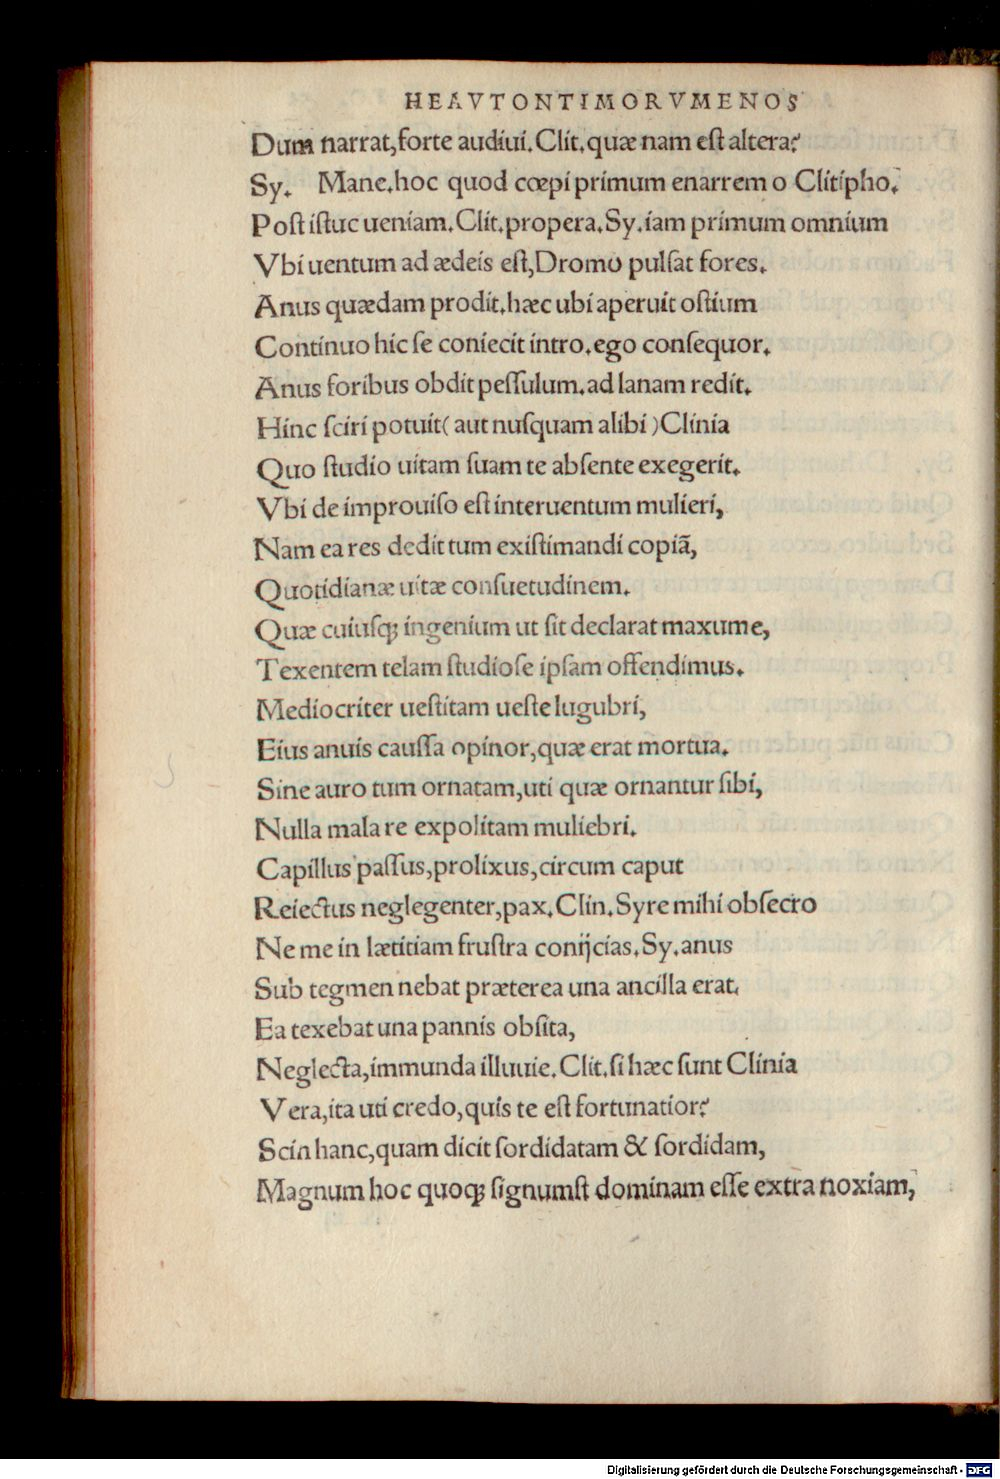 HEAVTONTIMORVMENOS
Dum narrat,forte audiui.Clit.quæ nam eſt altera?
Sy. Mane.hoc quod cœpi primum enarrem o Clitipho.
Poſt iſtuc ueniam.Clit.propera.Sy.iam primum omnium
Vbi uentum ad ædeis eſt,Dromo pulſat fores.
Anus quædam prodit.hæc ubi aperuit oſtium
Continuo hic ſe coniecit intro.ego conſequor.
Anus foribus obdit peſſulum.ad lanam redit.
Hinc ſciri potuit( aut nuſquam alibi )Clinia
Quo ſtudio uitam ſuam te abſente exegerit.
Vbi de improuiſo eſt interuentum mulieri,
Nam ea res dedit tum exiſtimandi copiã,
Quotidianæ uitæ conſuetudinem.
Quæ cuiuſq; ingenium ut ſit declarat maxume,
Texentem telam ſtudioſe ipſam offendimus.
Mediocriter ueſtitam ueſte lugubri,
Eius anuis cauſſa opinor,quæ erat mortua.
Sine auro tum ornatam,uti quæ ornantur ſibi,
Nulla mala re expolitam muliebri.
Capillus paſſus,prolixus,circum caput
Reiectus neglegenter,pax.Clin.Syre mihi obſecro
Ne me in lætitiam fruſtra conijcias.Sy.anus
Sub tegmen nebat præterea una ancilla erat.
Ea texebat una pannis obſita,
Neglecta,immunda illuuie.Clit.ſi hæc ſunt Clinia
Vera,ita uti credo,quis te eſt fortunatior?
Scin hanc,quam dicit ſordidatam & ſordidam,
Magnum hoc quoq; ſignumſt dominam eſſe extra noxiam,
Digitalisierung gefördert durch die Deutsche Forschungsgemeinschaft - DFG